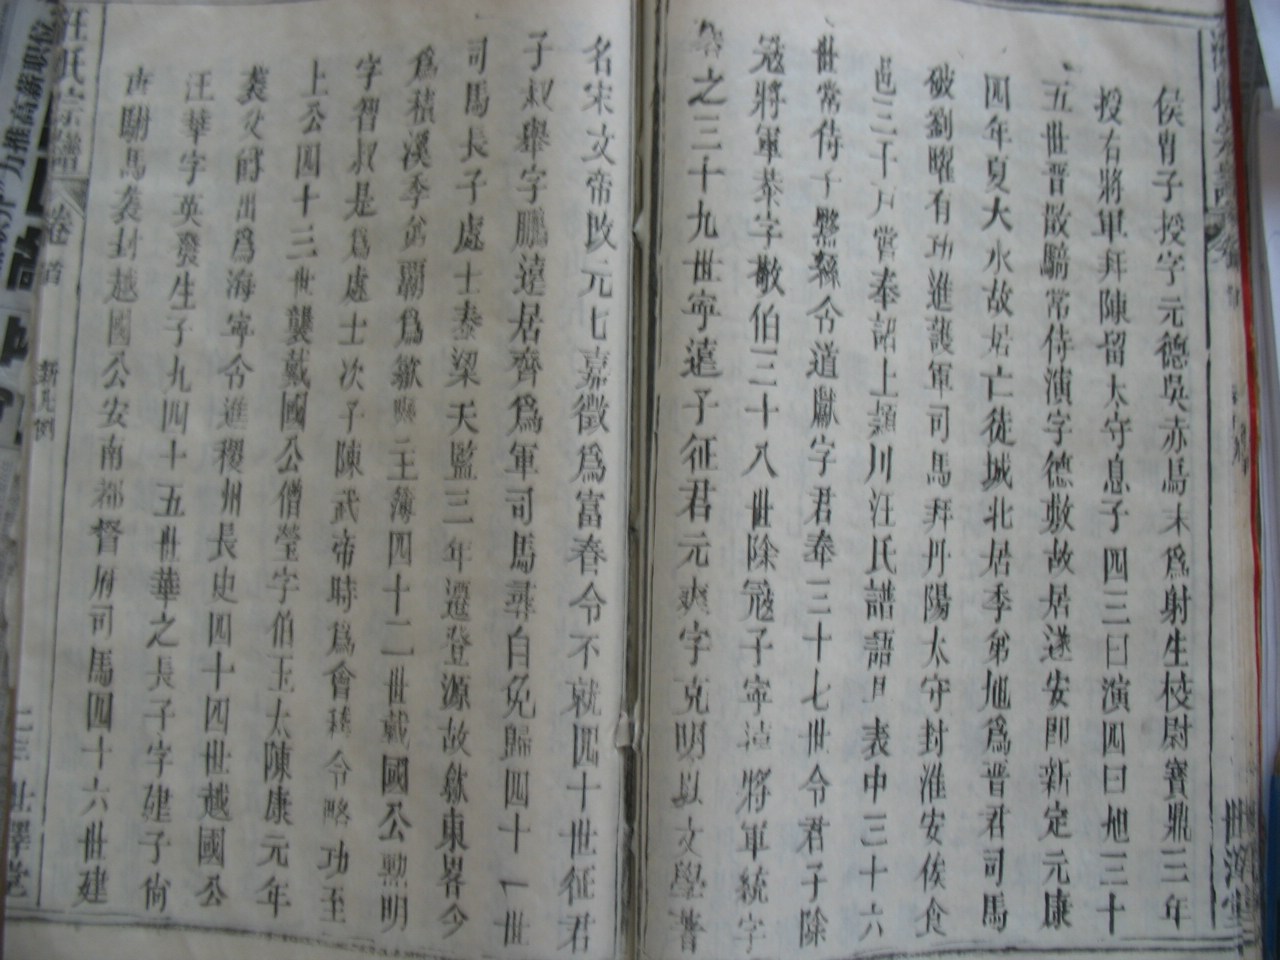 侯胄子授字元德吳赤烏末爲射生校尉寶鼎三年
授右將軍拜陳留太守息子四三曰演四曰旭三十
五世晋散騎常侍演字德敷故居遂安即新定元康
四年夏大水故居亡徒城北居季弟旭爲晋君司馬
破劉曜有功進護軍司馬拜丹陽太守封淮安侯食
邑三千户嘗奉詔上潁川汪氏譜語具表中三十六
世常侍子黟縣令道獻字君奉三十七世令君子除
冦將軍恭字敬伯三十八世除冦子寧遠將軍統字
之三十九世寧遠子征君元爽字克明以文學著
名宋文帝改元七嘉徵爲富春令不就四十世征君
子叔舉字鵬達居齊爲軍司馬尋自免歸四十一世
司馬長子處士泰梁天監三年遷登源故歙東畧今
爲積溪季爲歙縣主簿四十二世戴國公勲明
字智叔是爲處士次子陳武帝時爲會稽令略功至
上公四十三世襲戴國公僧瑩字伯玉太陳康元年
袭父爵出爲海寧令進稷州長史四十四世越國公
汪華字英發生子九四十五世華之長子字建子尙
唐駙馬袭封越國公安南都督府司馬四十六世建
汪氏宗譜
卷首
世澤堂